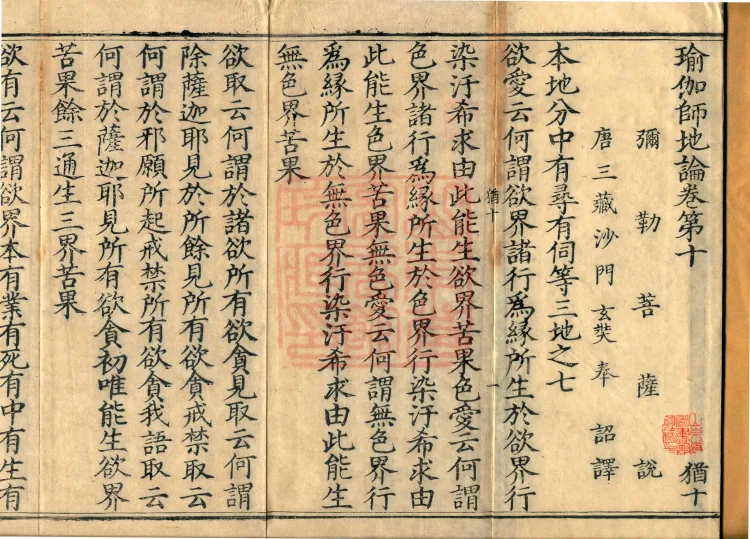 瑜伽師地論卷第十 猶十
彌勒菩薩說
唐三藏沙門玄奘奉 詔譯
本地分中有尋有伺等三地之七
欲愛云何謂欲界諸行爲緣所生於欲界行
猶十 一
染汙希求由此能生欲界苦果色愛云何謂
色界諸行爲緣所生於色界行染汙希求由
此能生色界苦果無色愛云何謂無色界行
爲緣所生於無色界行染汙希求由此能生
無色界苦果
欲取云何謂於諸欲所有欲貪見取云何謂
除薩迦耶見於所餘見所有欲貪戒禁取云
何謂於邪願所起戒禁所有欲貪我語取云
何謂於薩迦耶見所有欲貪初唯能生欲界
苦果餘三通生三界苦果
欲有云何謂欲界本有業有死有中有生有